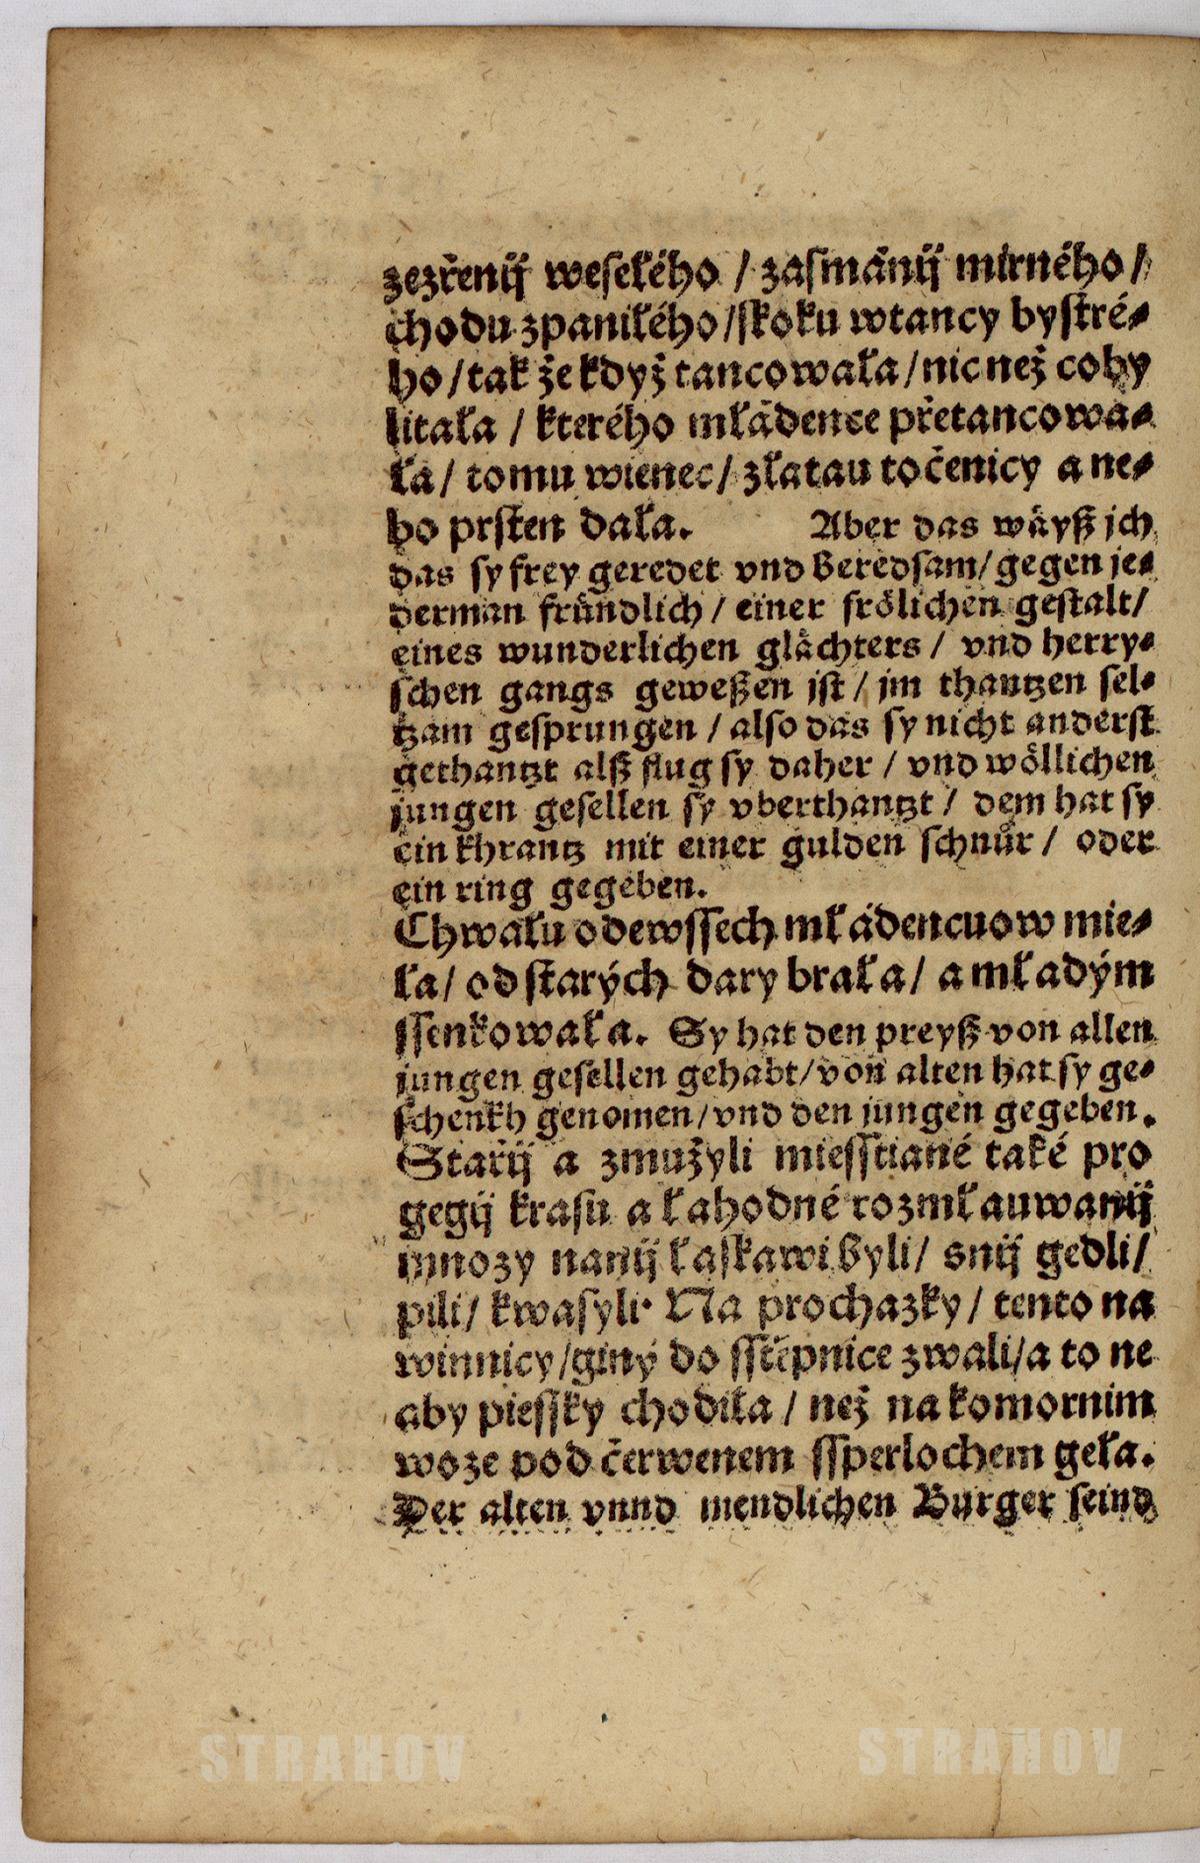 zezřenij weselého / zasmánij mírného /
chodu zpanilého / skoku wtancy bystré⸗
ho / tak že když tancowała / nic než coby
litała / kterého mládence přetancowa⸗
ła / tomu wienec / złatau točenicy a ne⸗
bo prsten dała. Aber das wäyß ich
das sy frey geredet vnd beredsam / gegen je⸗
derman fründlich / einer frölichen gestalt /
eines wunderlichen glächters / vnd herry⸗
schen gangs geweßen jst / jm thantzen sel⸗
tzam gesprungen / also das sy nicht anderst
gethantzt alß flug sy daher / vnd wöllichen
jungen gesellen sy vberthantzt / dem hat sy
ein khrantz mit einer gulden schnůr / oder
ein ring gegeben.
Chwału odewssech mládencuow mie⸗
ła / od starých dary brała / a mładým
ssenkowała. Sy hat den preyß von allen
jungen gesellen gehabt / von alten hat sy ge⸗
schenkh genomen / vnd den jungen gegeben.
Stařij a zmužyli miesstiané také pro
gegij krasu a łahodné rozmłauwanij
mnozy nanij łaskawi byli / snij gedli /
pili / kwasyli. Na prochazky / tento na
winnicy / giný do sstěpnice zwali / a to ne
aby piessky chodiła / než na komornim
woze pod čerwenem ssperlochem geła.
Der alten vnnd mendlichen Burger seind
STRAHOV STRAHOV